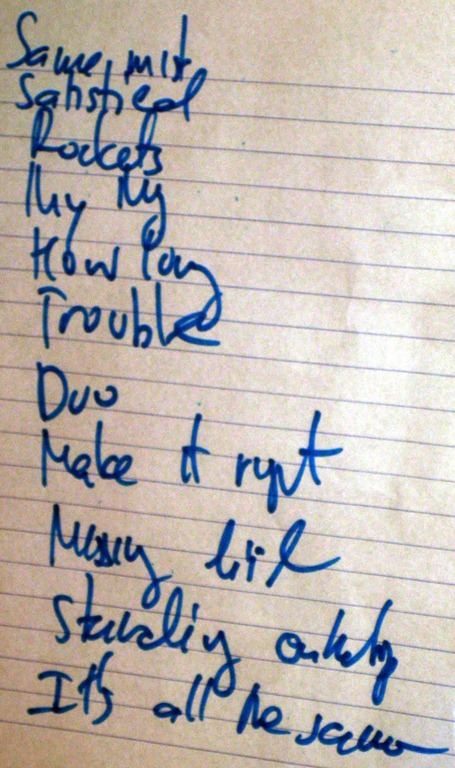 Same mist
Satisfied
Rockets
My My
How long
Trouble
Duo
Make it right
Messy
Standing on top
It's all the same